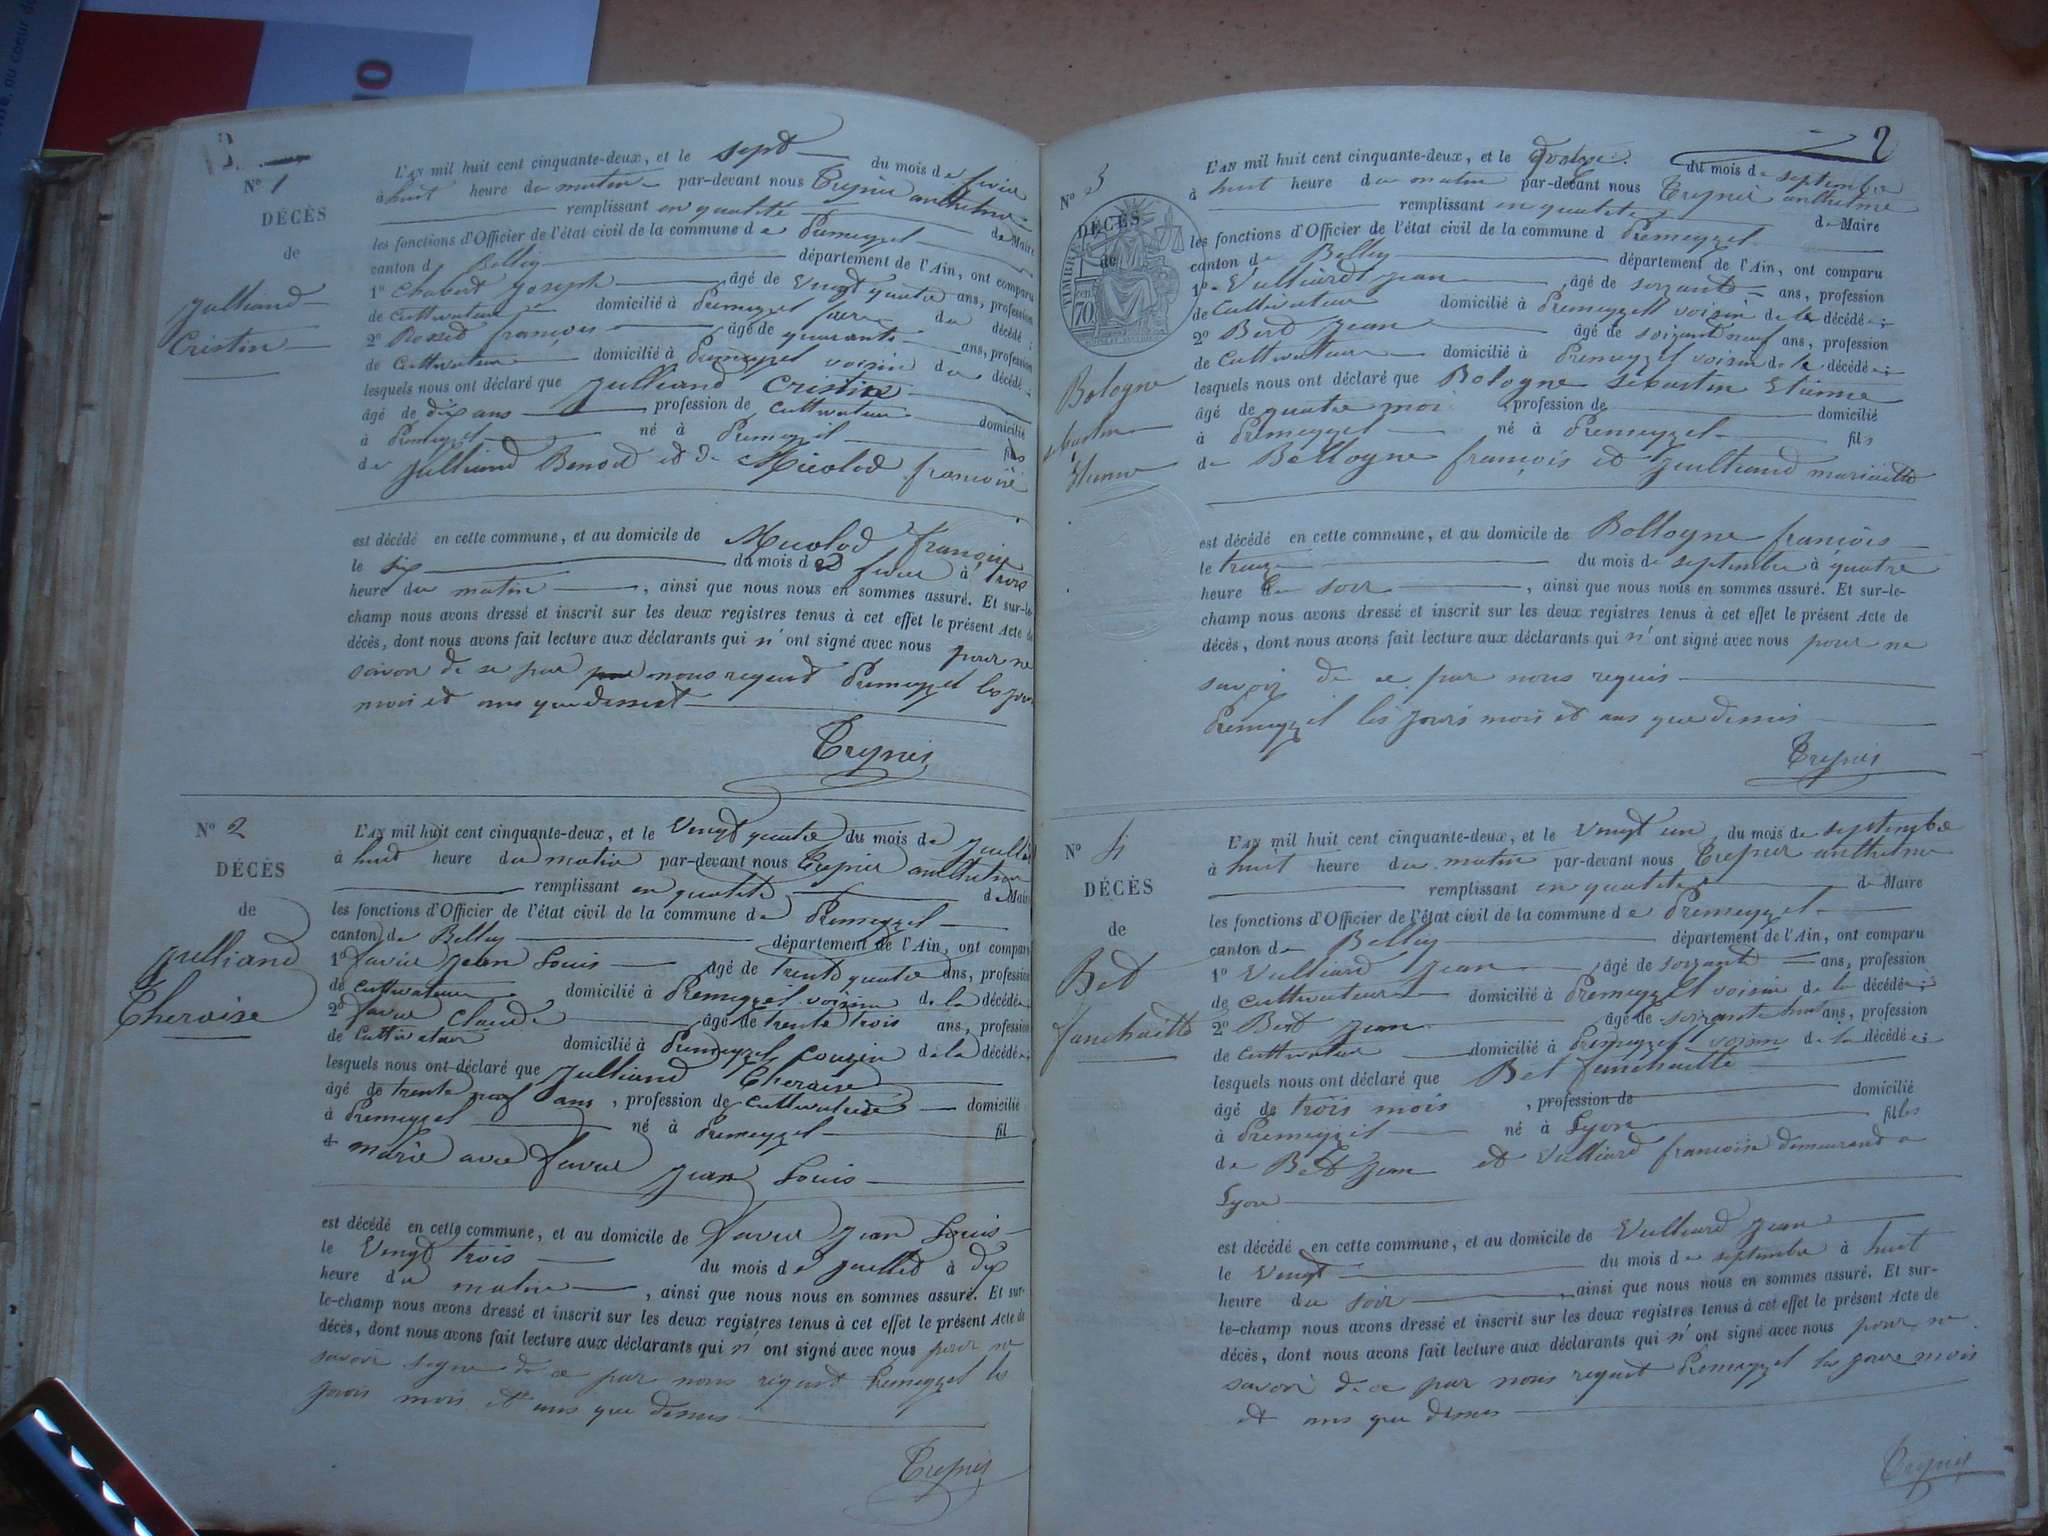 N° 1
DÉCÈS
de
Julliand
Cristin
L'AN mil huit cent cinquante-deux, et le sept du mois de
à huit heure du matin par-devant nous Trepier anthelme
remplissant en qualité de Maire
les fonctions d'Officier de l'état civil de la commune de Premeyzel
canton de Belley département de l'Ain, ont comparu
1° Chabert Joseph âgé de vingt quatre ans, profession
de cultivateur domicilié à Premeyzel du décédé ;
2° françois âgé de quarante ans, profession
de cultivateur domicilié à Premeyzel voisin du décédé ;
lesquels nous ont déclaré que Julliand Cristin
âgé de dix ans profession de cultivateur domicilié
à Premeyzel né à Premeyzel fils
de Julliand Benoit et de Micolod
est décédé en cette commune, et au domicile de Micolod
le six du mois de à trois
heure du matin , ainsi que nous nous en sommes assuré. Et sur-le-
champ nous avons dressé et inscrit sur les deux registres tenus à cet effet le présent Acte de
décès, dont nous avons fait lecture aux déclarants qui n'ont signé avec nous pour ne
savoir de ce par nous Premeyzel les
mois et ans que dessus
N° 2
DÉCÈS
de
Julliand
Theraise
L'AN mil huit cent cinquante-deux, et le vingt quatre du mois de
à huit heure du matin par-devant nous Trepier anthelme
remplissant en qualité de Maire
les fonctions d'Officier de l'état civil de la commune de Premeyzel
canton de Belley département de l'Ain, ont comparu
1° favre Jean Louis âgé de trente quatre ans, profession
de cultivateur domicilié à Premeyzel voisin de la décédée ;
2° favre Claude âgé de trente trois ans, profession
de cultivateur domicilié à Premeyzel cousin de la décédée ;
lesquels nous ont déclaré que Julliand Theraise
âgé de trente neuf ans , profession de domicilié
à Premeyzel né à Premeyzel fil
marie avec favre Jean Louis
est décédé en cette commune, et au domicile de favre Jean Louis
le vingt trois du mois de juillet à dix
heure du matin , ainsi que nous nous en sommes assuré. Et sur-
le-champ nous avons dressé et inscrit sur les deux registres tenus à cet effet le présent Acte de
décès, dont nous avons fait lecture aux déclarants qui n'ont signé avec nous pour ne
savoir signe de ce par nous Premeyzel les
jours mois et ans que dessus
2
N° 3
DÉCÈS
de
TIMBRE
70
Bologne
L'AN mil huit cent cinquante-deux, et le du mois de septembre
à huit heure du matin par-devant nous Trepier anthelme
remplissant en qualité de Maire
les fonctions d'Officier de l'état civil de la commune d Premeyzel
canton de Belley département de l'Ain, ont comparu
1° Vulliard Jean âgé de ans, profession
de cultivateur domicilié à Premeyzel voisin de le décédé ;
2° Bert Jean âgé de ans, profession
de cultivateur domicilié à Premeyzel voisin de le décédé ;
lesquels nous ont déclaré que Bologne Sebastin
âgé de quatre moi , profession de domicilié
à Premeyzel né à Premeyzel fils
de Bellogne françois et
est décédé en cette commune, et au domicile de Bollogne françois
le du mois de septembre à quatre
heure du soir , ainsi que nous nous en sommes assuré. Et sur-le-
champ nous avons dressé et inscrit sur les deux registres tenus à cet effet le présent Acte de
décès, dont nous avons fait lecture aux déclarants qui n'ont signé avec nous pour ne
de ce par nous requis
Premeyzel les jours mois et ans que dessus
N° 4
DÉCÈS
de
Bet
fanchaitte
L'AN mil huit cent cinquante-deux, et le vingt un du mois de septembre
à huit heure du matin par-devant nous Trepier anthelme
remplissant en qualité de Maire
les fonctions d'Officier de l'état civil de la commune de Premeyzel
canton de Belley département de l'Ain, ont comparu
1° Vulliard Jean âgé de ans, profession
de cultivateur domicilié à Premeyzel voisin de la décédée ;
2° Bert Jean âgé de ans, profession
de cultivateur domicilié à Premeyzel voisin de la décédée ;
lesquels nous ont déclaré que Bet fanchaitte
âgé de trois mois , profession de domicilié
à Premeyzel né à Lyon filles
de Bet Jean et Vulliard
Lyon
est décédé en cette commune, et au domicile de Vulliard Jean
le vingt du mois de septembre à huit
heure du soir , ainsi que nous nous en sommes assuré. Et sur-
le-champ nous avons dressé et inscrit sur les deux registres tenus à cet effet le présent Acte de
décès, dont nous avons fait lecture aux déclarants qui n'ont signé avec nous pour ne
de ce par nous Premeyzel les jours mois
et ans que dessus